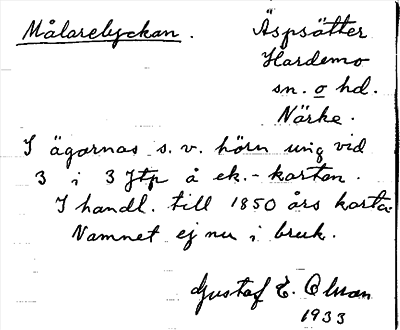 Målarelyckan. Äspsätter
Hardemo
sn. o hd.
Närke.
I ägornas s.v. hörn ung vid
3 i 3 Jtp å ek.-kartan.
I handl. till 1850 års karta.
Namnet ej nu i bruk.
Gustaf E. Olsson
1933